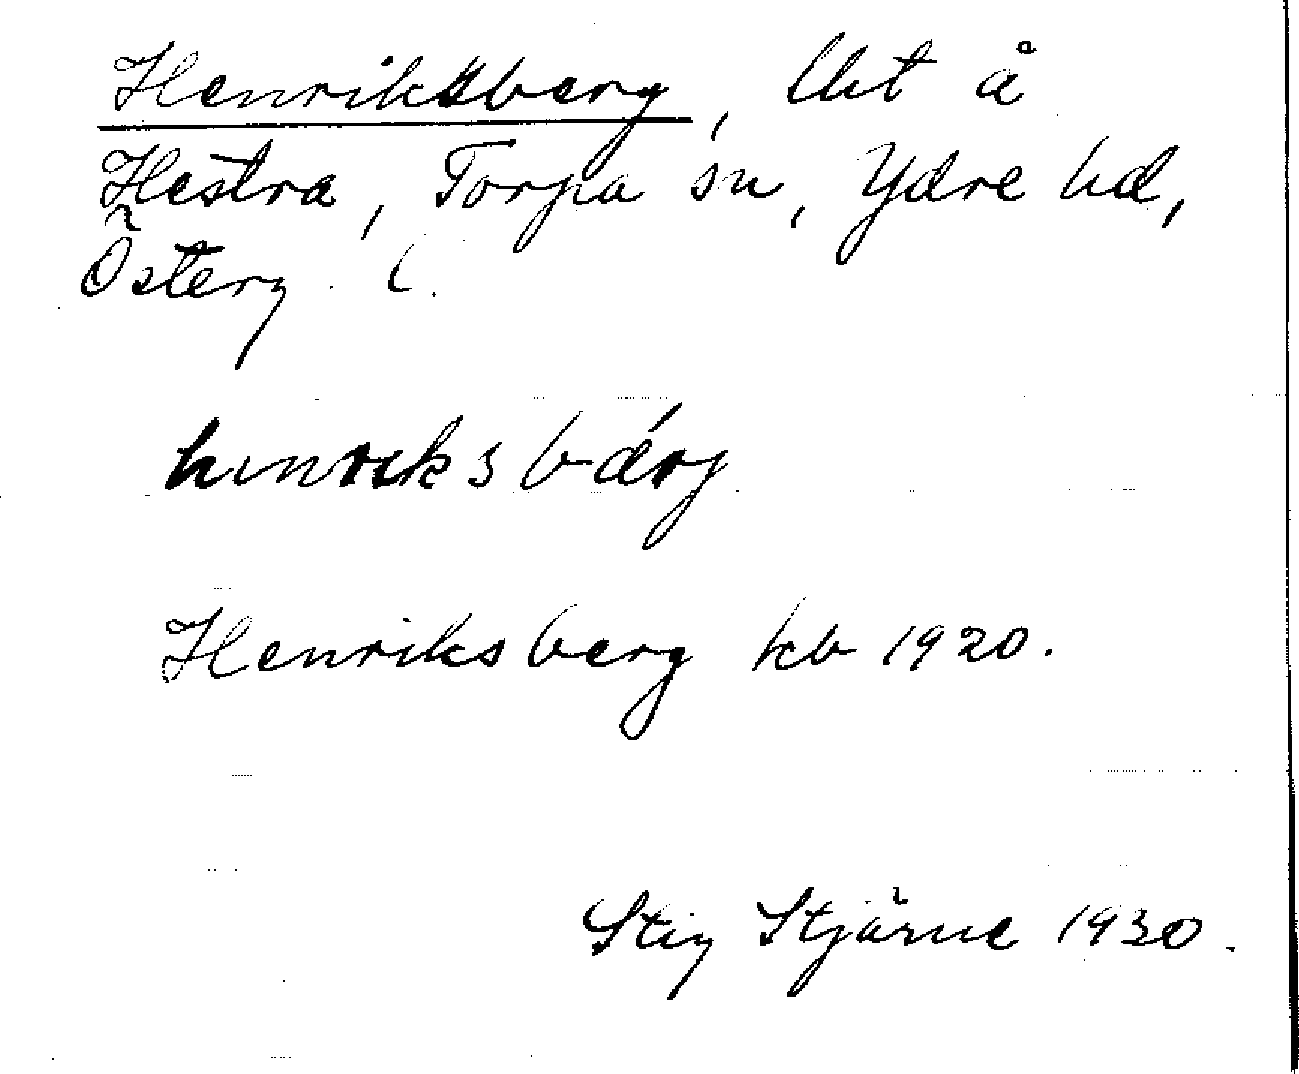 Henriksberg, lht å
Hestra, Torpa sn, Ydre hd,
Österg. l.
hinriksbærj
Henriksberg kb 1920.
Stig Stjärne 1930.